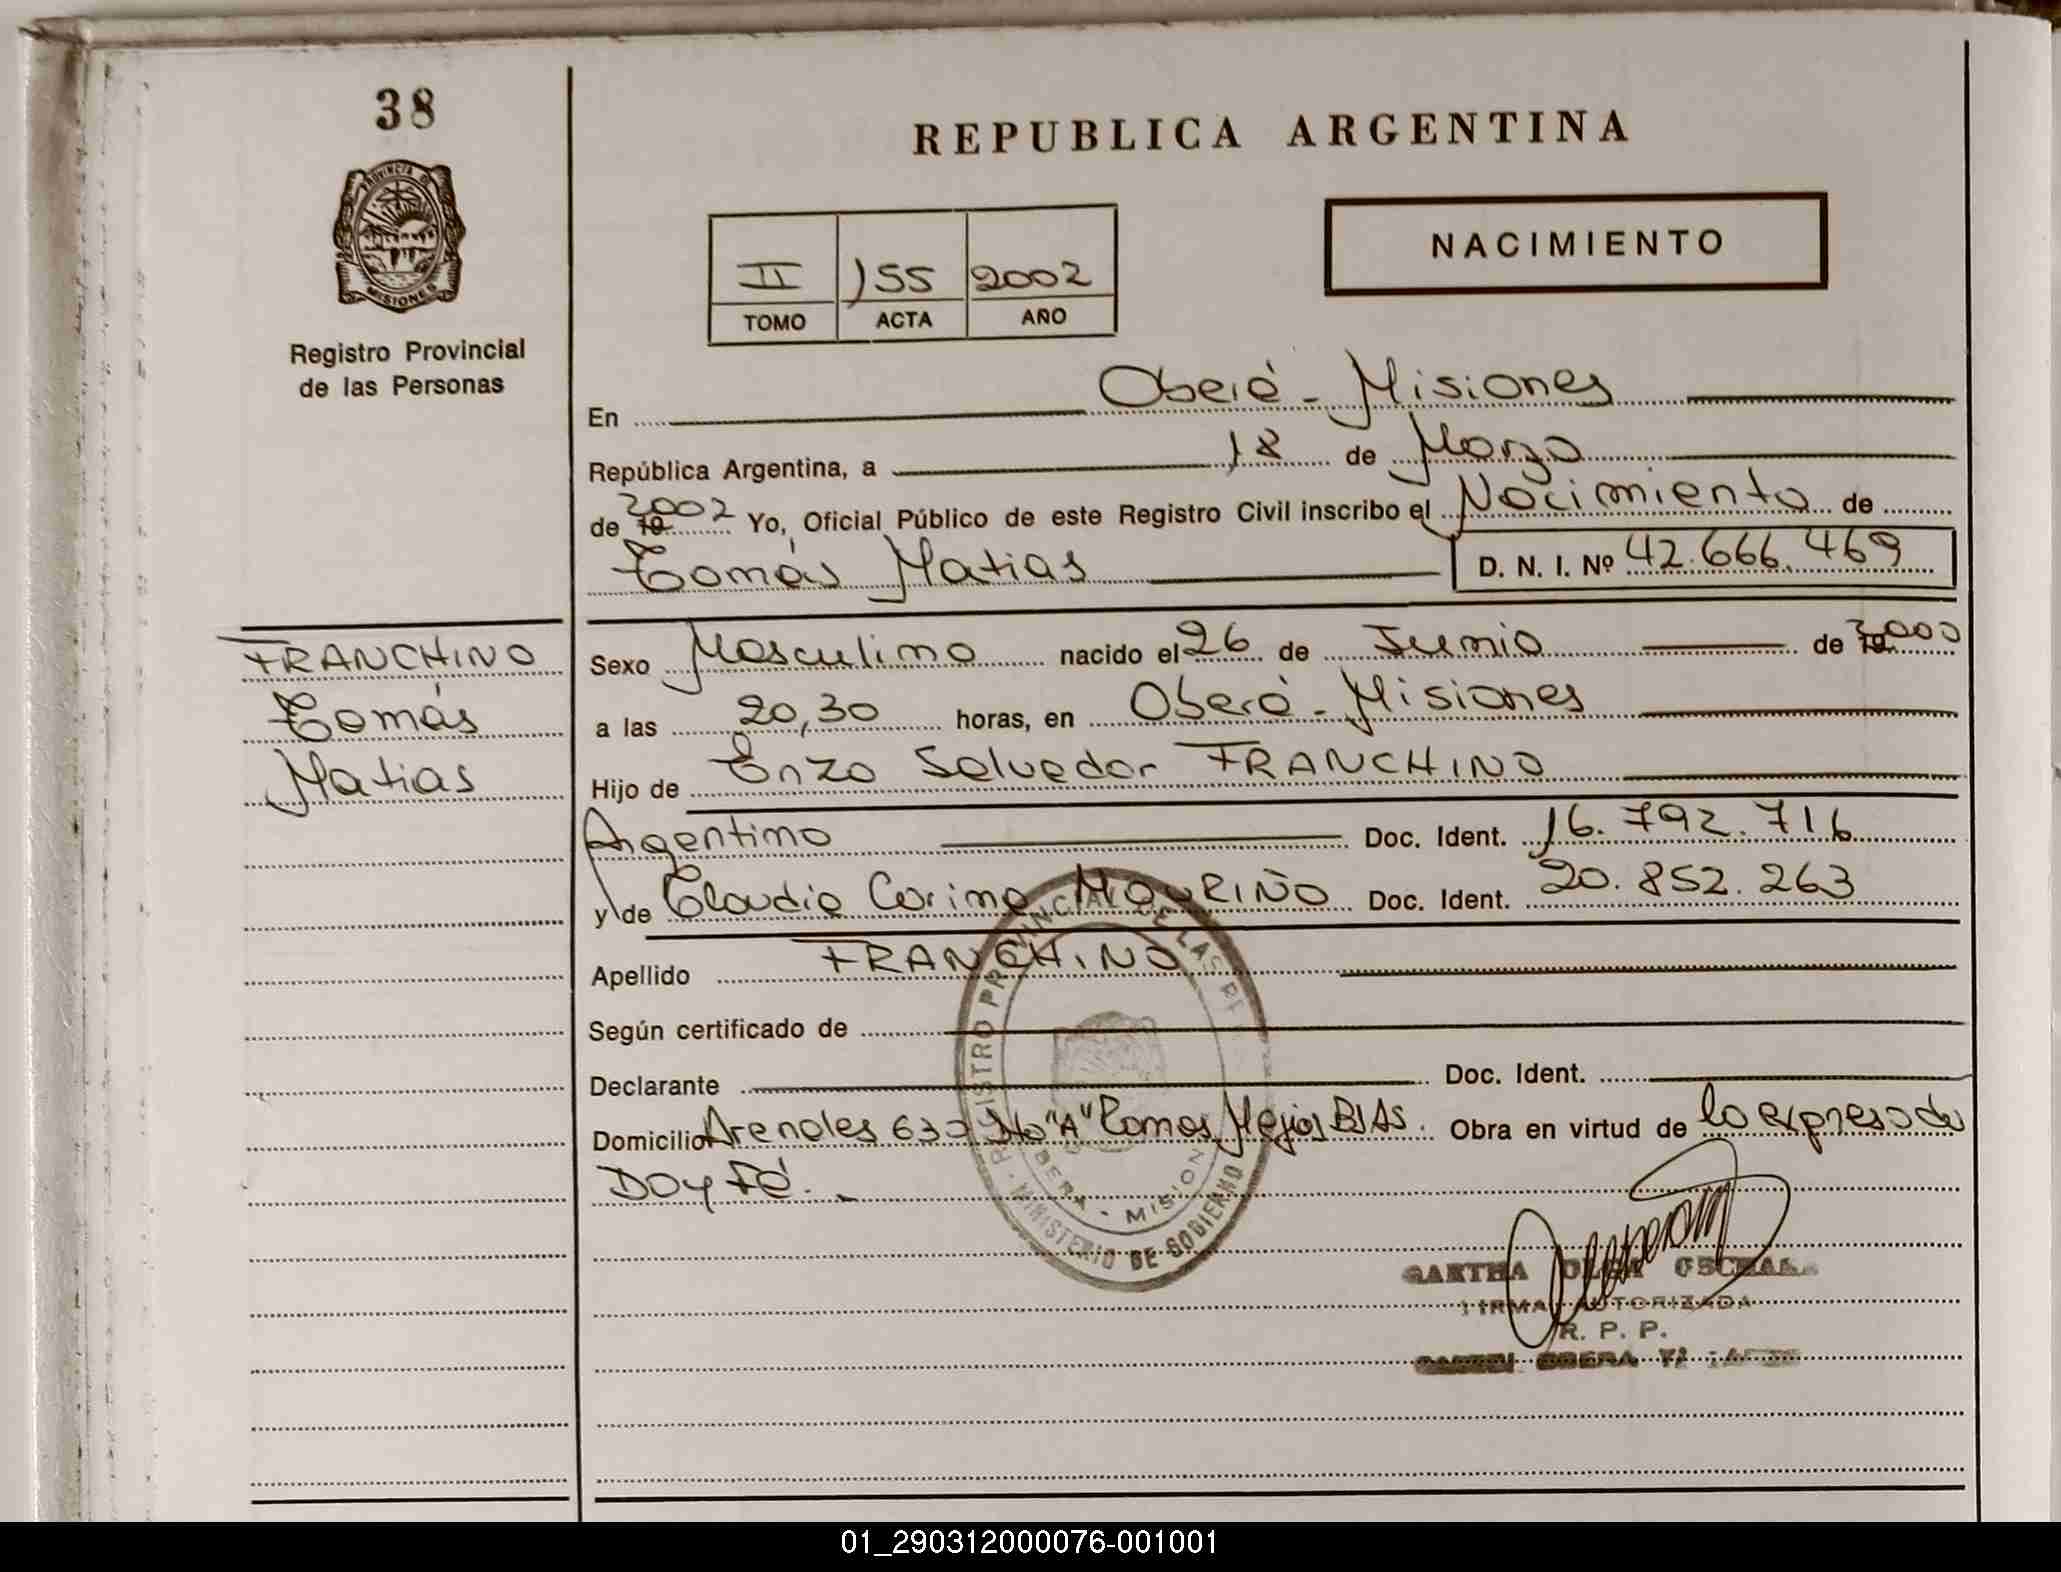 38
PROVINCIA DE
MISIONES
Registro Provincial
de las Personas
REPUBLICA ARGENTINA
NACIMIENTO
II 155 2002
TOMO ACTA AÑO
En Oberá - Misiones
República Argentina, a 18 de Marzo
de 19 2002 Yo, Oficial Público de este Registro Civil inscribo el Nacimiento de
Tomás Matias D. N. I. Nº 42.666.469
FRANCHINO
Tomás
Matias
Sexo Masculino nacido el 26 de Junio de 19 2000
a las 20,30 horas, en Oberá - Misiones
Hijo de Enzo Salvador FRANCHINO
Argentino Doc. Ident. 16.792.716
y de Claudia Corina MOURIÑO Doc. Ident. 20.852.263
Apellido FRANCHINO
Según certificado de
Declarante Doc. Ident.
Domicilio Arenales "A" Ramos Mejias Bs As. Obra en virtud de lo expresado
DOY FÉ. -
REGISTRO PROVINCIAL DE LAS
OBERA - MISION
MINISTERIO DE GOBIERNO
OLGA
FIRMA AUTORIZADA
R. P. P.
OBERA
01_290312000076-001001